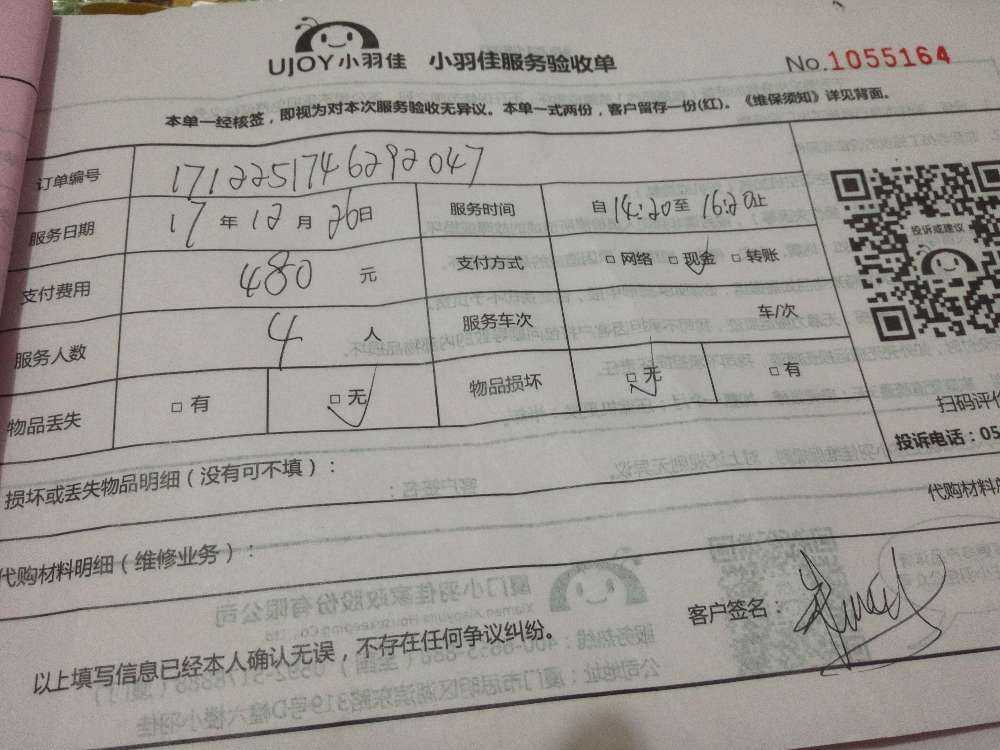 UJOY小羽佳 小羽佳服务验收单 No.1055164
本单一经核签，即视为对本次服务验收无异议。本单一式两份，客户留存一份(红)。《维保须知》详见背面。
订单编号 1712251746292047
服务日期 17 年 12 月 26 日 服务时间 自 14:20 至 16:20 止
投诉或建议
支付费用 480 元 支付方式 □ 网络 □ 现金 □ 转账
服务人数 4 人 服务车次 车/次
物品丢失 □ 有 □ 无 物品损坏 □ 无 □ 有
扫码评价
投诉电话：05
损坏或丢失物品明细（没有可不填）：
代购材料
代购材料明细（维修业务）：
客户签名：
以上填写信息已经本人确认无误，不存在任何争议纠纷。